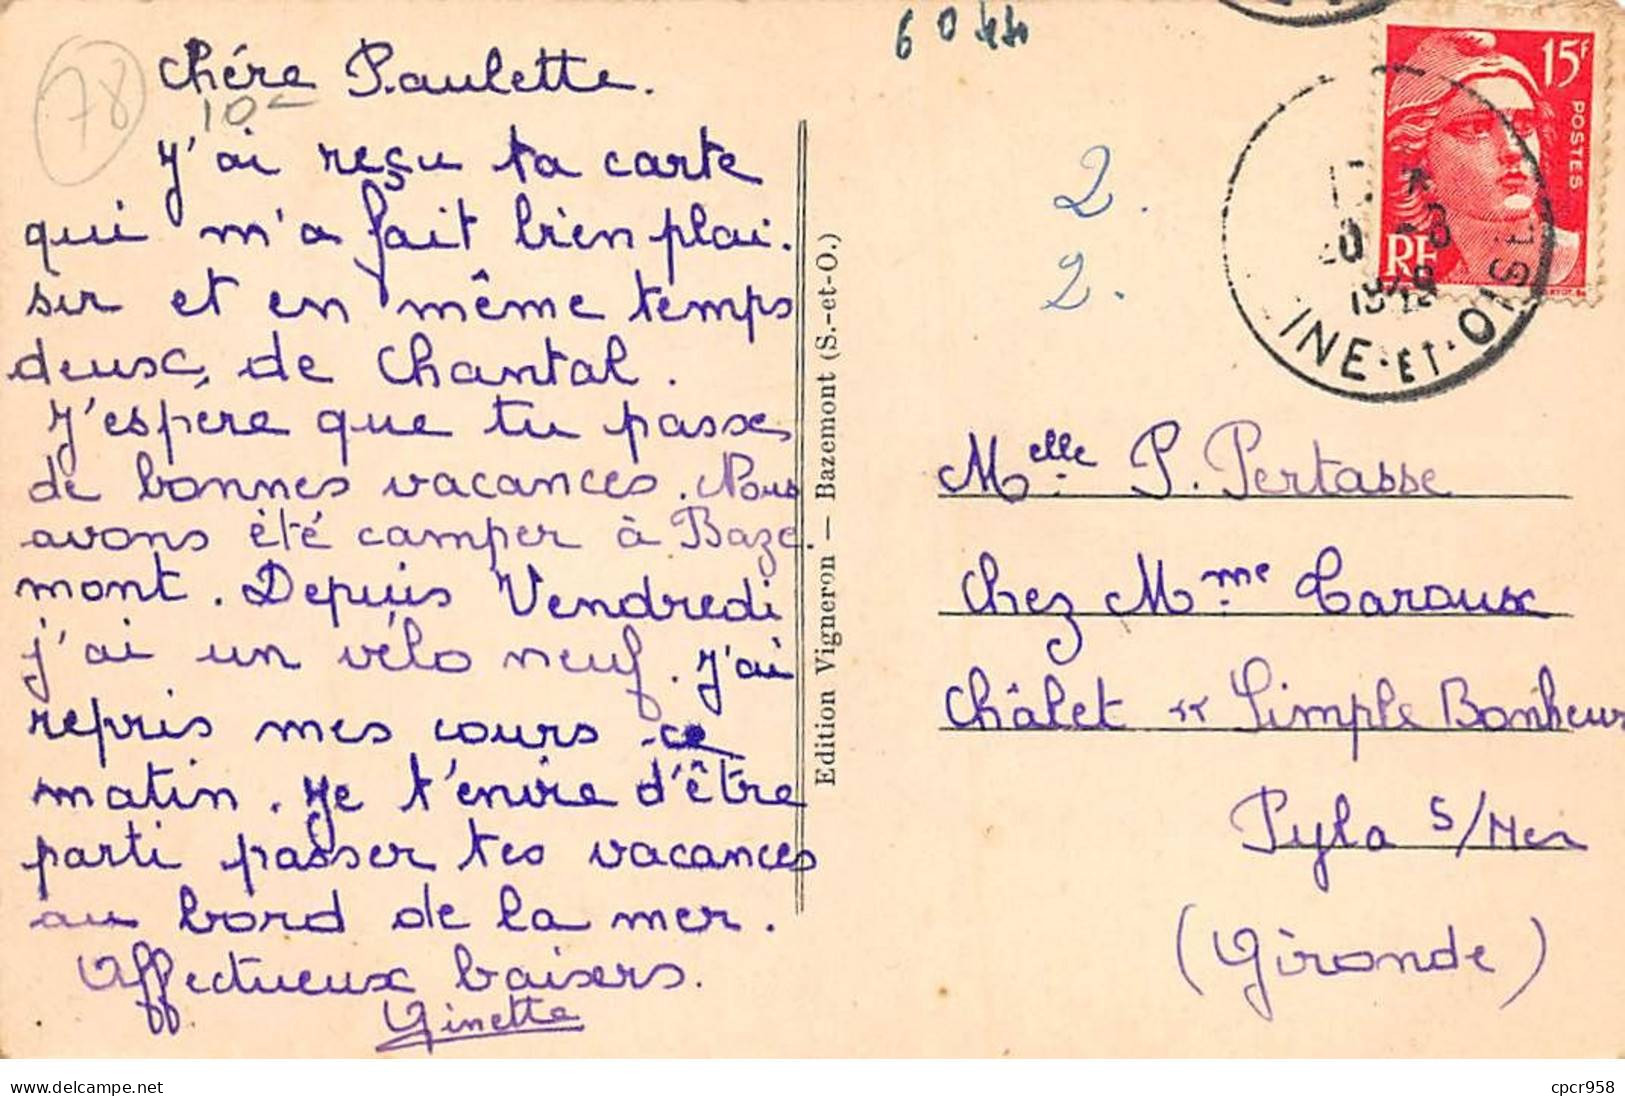 6044
78
Chére Paulette.
10
J'ai reçu ta carte
qui m'a fait bien plai-
sir et en même temps
deux, de Chantal.
J'espère que tu passes
de bonnes vacances. Nous
avons été camper à Baze-
mont. Depuis Vendredi
j'ai un vélo neuf. J'ai
repris mes cours ce
matin. Je t'envie d'être
parti passer tes vacances
au bord de la mer.
Affectueux baisers.
Ginette
Edition Vigneron — Bazemont (S.-et-O.)
2.
2.
15F
POSTES
RF
INE-ET-OISE
Melle P. Pertasse
Chez Mme Caroux
Châlet " Simple Bonheur
Pyla S/Mer
(Gironde)
www.delcampe.net
cpcr958